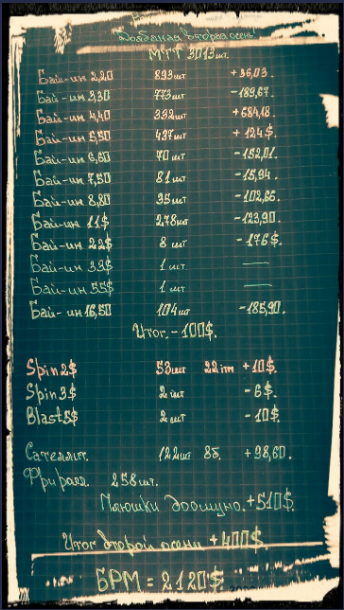 вторая осень.
МТТ 3013 шт.
Бай-ин 2,20 893 шт +36,03.
Бай-ин 3,30 773 шт -189,67.
Бай-ин 4,40 332 шт +684,18.
Бай-ин 5,50 437 шт +124$.
Бай-ин 6,60 70 шт -152,01.
Бай-ин 7,50 81 шт -15,94.
Бай-ин 8,80 35 шт -102,66.
Бай-ин 11$ 278 шт -123,90.
Бай-ин 22$ 8 шт -176$.
Бай-ин 33$ 1 шт —
Бай-ин 55$ 1 шт —
Бай-ин 16,50 104 шт -185,90.
Итог. -100$.
Spin 2$ 53 шт 22 itm +10$.
Spin 3$ 2 шт -6$.
Blast 5$ 2 шт -10$.
Сателлит. 122 шт 8б. +98,60.
Фриролл 258 шт.
Плюшки +510$.
Итог второй осени +400$.
БРМ = 2120$.